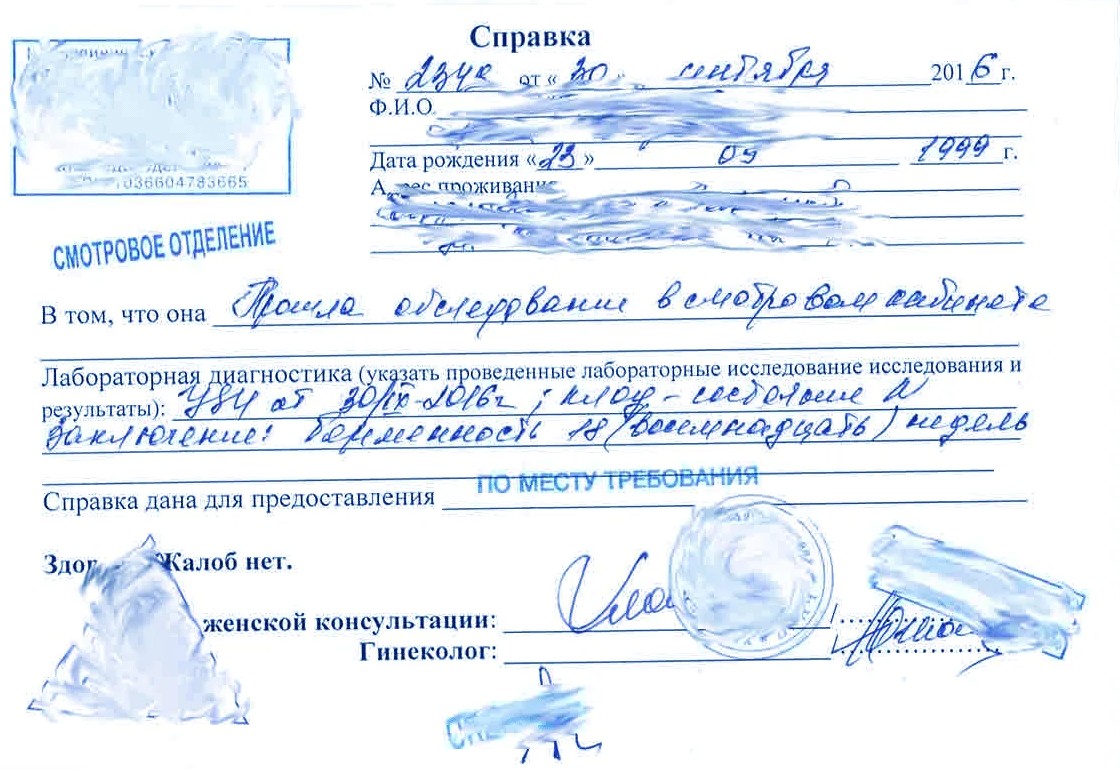 Справка
№ 234 от «30» сентября 2016 г.
Ф.И.О.
Дата рождения «23» 09 1999 г.
1036604783665
СМОТРОВОЕ ОТДЕЛЕНИЕ
В том, что она Прошла обследование в смотровом кабинете
Лабораторная диагностика (указать проведенные лабораторные исследование исследования и
результаты): УЗИ от 30/IX-2016г ; плод - состояние N
Заключение: беременность 18 (восемнадцать) недель
Справка дана для предоставления ПО МЕСТУ ТРЕБОВАНИЯ
Жалоб нет.
женской консультации:
Гинеколог: